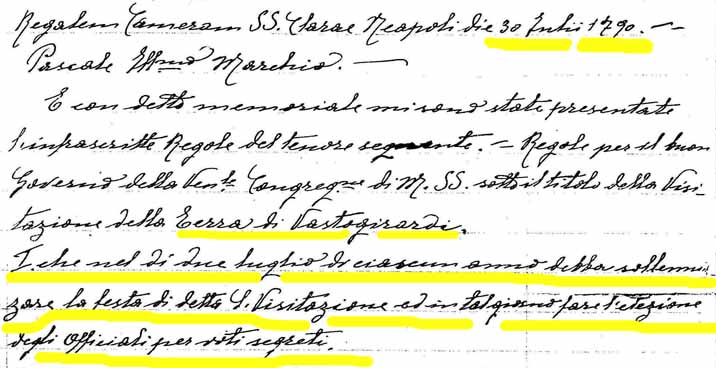 Regalem Cameram SS. Clarae Neapoli die 30 Julii 1790. —
Pascale Marchio. —
E con detto memoriale mi sono state presentate
l'infrascritte Regole del tenore seguente. — Regole per il buon
Governo della Ven.le Congreg.ne di M. SS. sotto il titolo della Visi-
tazione della Terra di Vastogirardi.
I. che nel di due luglio di ciascun anno debba sollenniz
zare la festa di detta S. Visitazione ed in tal giorno fare l'elezione
degli Officiali per voti segreti.